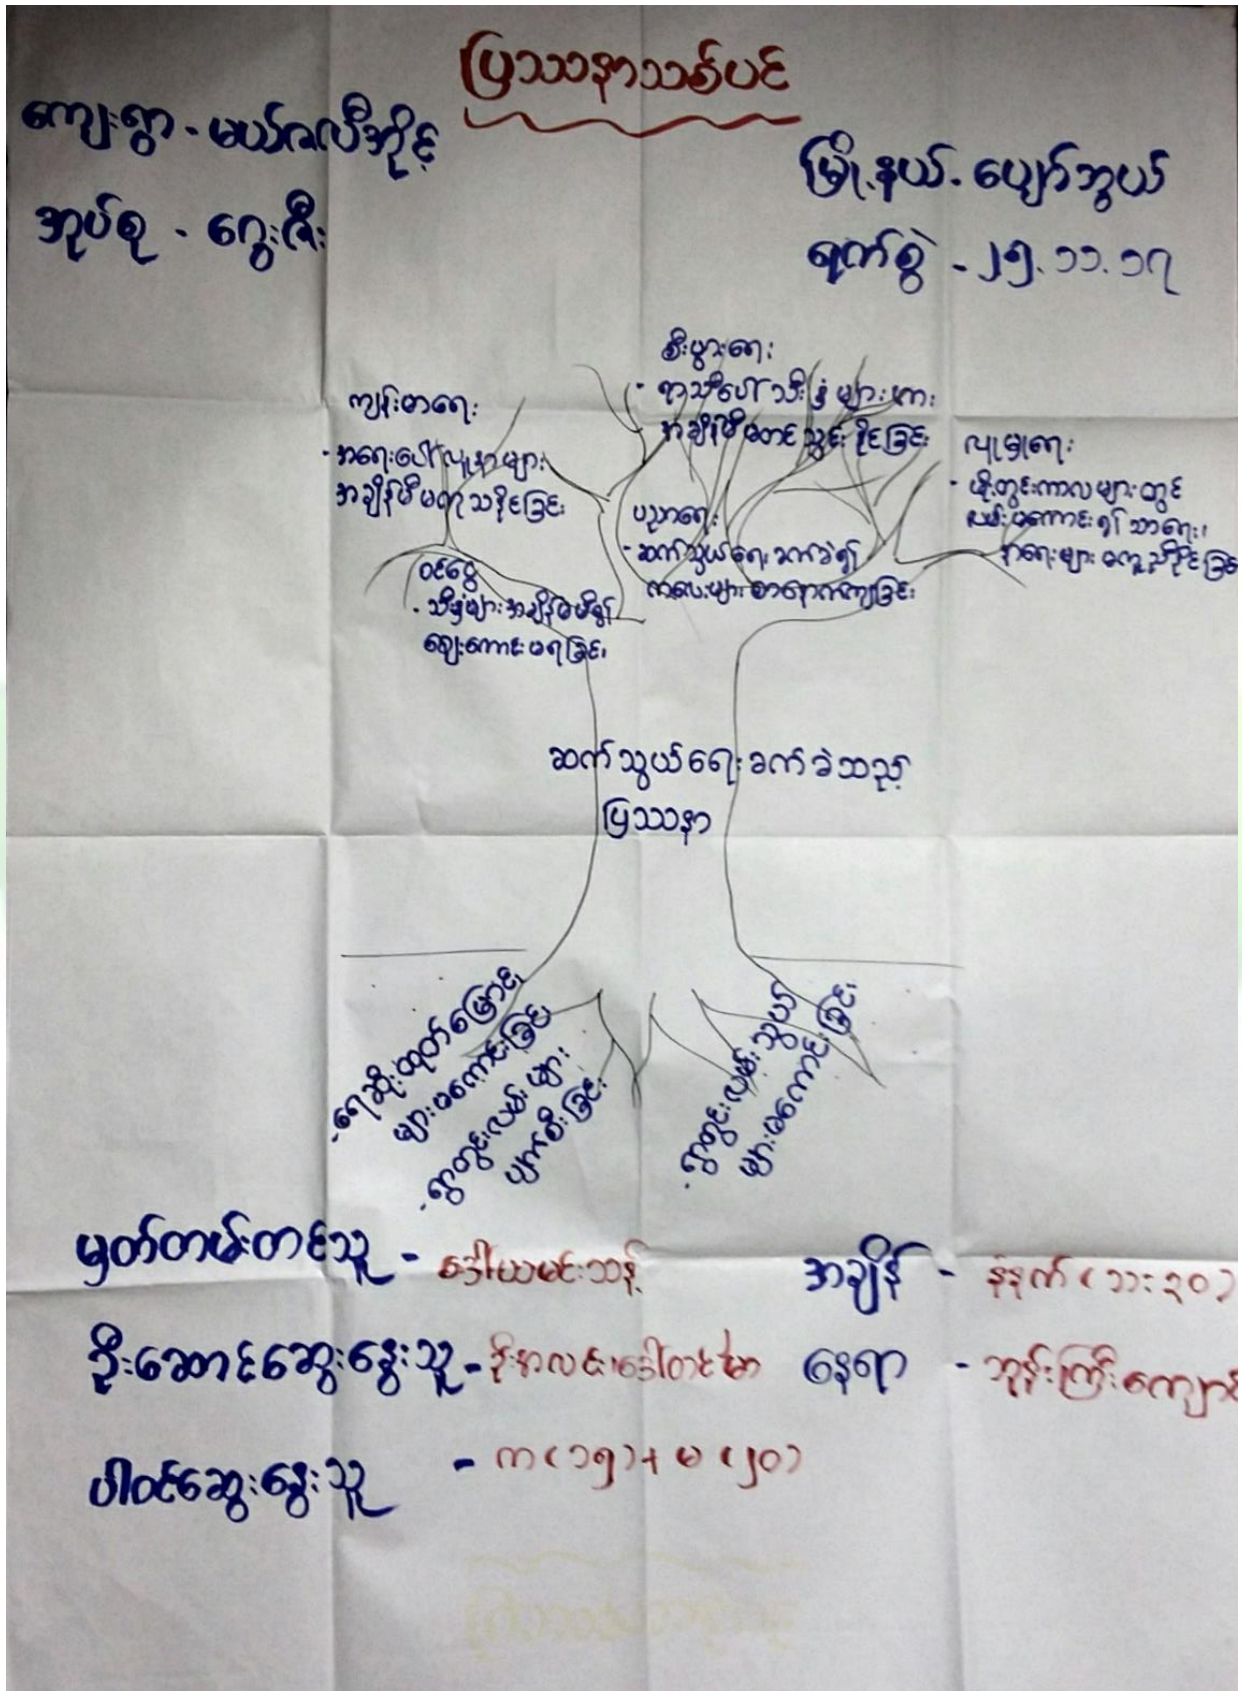 ပြဿနာသစ်ပင်
ကျေးရွာ - မယ်ဇလီအိုင့်
မြို့နယ် - ပျော်ဘွယ်
အုပ်စု - ဂွေးဇီး
ရက်စွဲ - ၂၅.၁၁.၁၇
စီးပွားရေး
- ရာသီပေါ်သီးနှံများအား
အချိန်မီမတင်သွင်းနိုင်ခြင်း
ကျန်းမာရေး
- အရေးပေါ်လူနာများ
အချိန်မီမကုသနိုင်ခြင်း
လူမှုရေး
- မိုးတွင်းကာလများတွင်
လမ်းမကောင်း၍သာရေး၊
နာရေးများမကူညီနိုင်ခြင်း
ပညာရေး
- ဆက်သွယ်ရေးခက်ခဲ၍
ကလေးများစာနောက်ကျခြင်း
ဝင်ငွေ
- သီးနှံများအချိန်မမီ၍
ဈေးကောင်းမရခြင်း
ဆက်သွယ်ရေးခက်ခဲသည့်
ပြဿနာ
- ရေဆိုးထုတ်မြောင်း
များမကောင်းခြင်း
- ရွာတွင်းလမ်းများ
ပျက်စီးခြင်း
- ရွာတွင်းလမ်းသွယ်
များမကောင်းခြင်း
မှတ်တမ်းတင်သူ - ဒေါ်ယမင်းသန့်
အချိန် - နံနက် (၁၁:၃၀)
ဦးဆောင်ဆွေးနွေးသူ - ဦးအာလင်း၊ဒေါ်တင်မာ
နေရာ - ဘုန်းကြီးကျောင်း
ပါဝင်ဆွေးနွေးသူ - က (၁၅) + မ (၂၀)